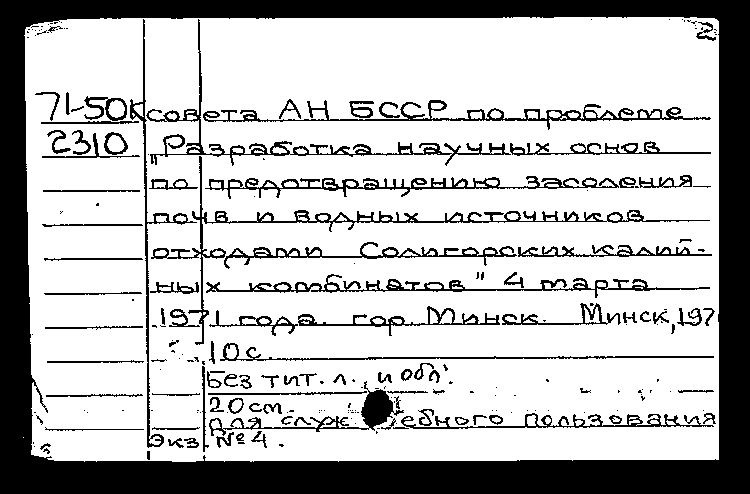 2
71-50К совета АН БССР по проблеме
2310 „Разработка научных основ
по предотвращению засоления
почв и водных источников
отходами Солигорских калий-
ных комбинатов" 4 марта
1971 года. гор. Минск. Минск, 197
10 с.
Без тит. л. и обл.
20 см.
Для служебного пользования
Экз. № 4.